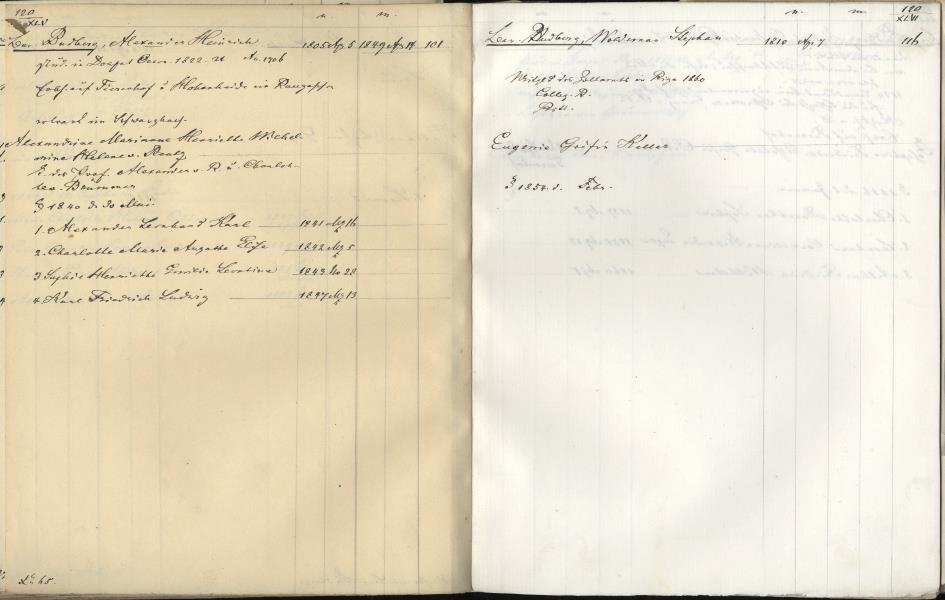 120
XLV
n. m.
Bar. Budberg, Alexander Heinrich 1805 Ap 5 1849 Apr 14 101
stud. in Dorpat 1822-26 No 1706
Erbh: auf Fierenhof u Hohenheide im Raugeschen
Alexandrine Marianne Henriette Wilhel-
mine Helene v. Reutz
T. des Prof. Alexander v. R. u. Charlott.
v. Brümmer
1840 d. Mai
1. Alexander Leonhard Karl 1841 16
2. Charlotte Marie Auguste Elise 1842 5
3 Sophie Henriette Emilie Leontine 1843 No 28
4 Karl Friedrich Ludwig 1847 13
120
XLVI
n. m.
Bar. Budberg, Woldemar Stephan 1810 Ap 7 116
Mitgl. d. Zollamts in Riga 1860
Colleg. R.
Ritt.
Eugenie Gräfin Keller
1854 d. Febr.